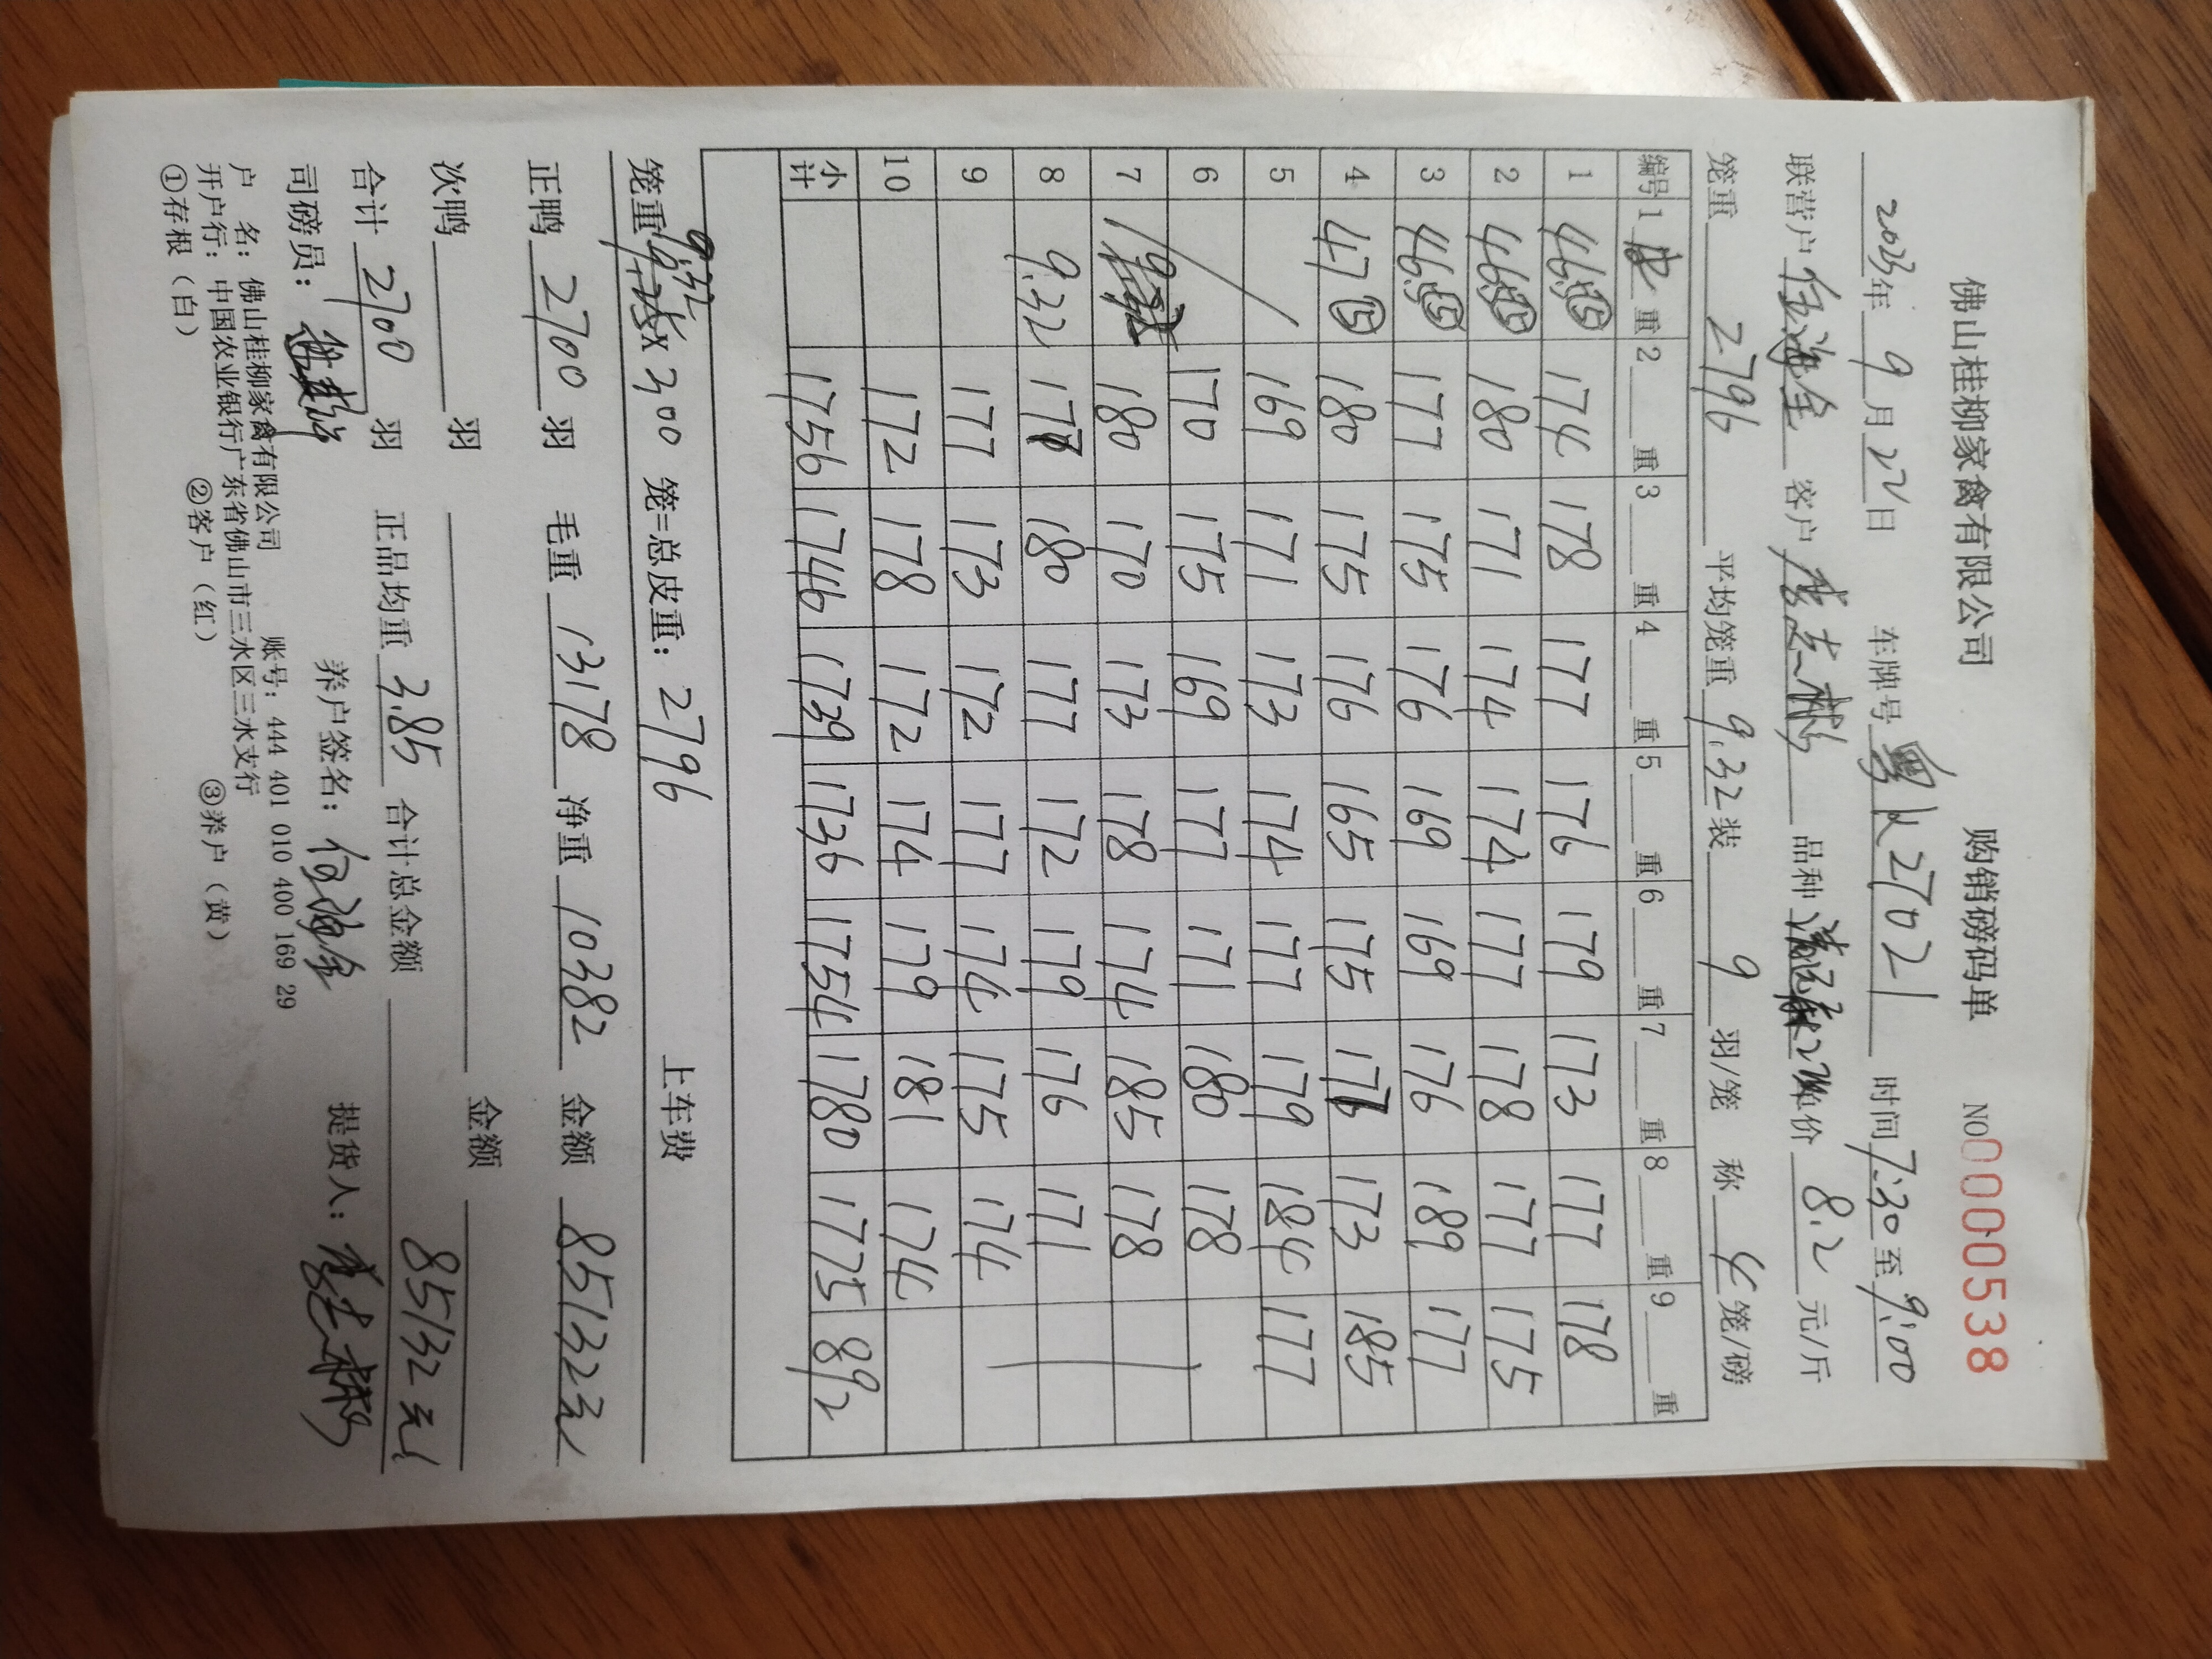 佛山桂柳家禽有限公司 购销磅码单 NO 0000538
2023年 9 月 22日 车牌号 粤 27021 时间 7:30 至 9:00
联营户 伍海全 客户 品种 单价 8.2 元/斤
笼重 2796 平均笼重 9.32 装 9 羽/笼 称 4 笼/磅
编号 1 皮 重 2 重 3 重 4 重 5 重 6 重 7 重 8 重 9 重
1 46.5 ⑤ 174 178 177 176 179 173 177 178
2 46.5 ⑤ 180 171 174 174 177 178 177 175
3 46.5 ⑤ 177 175 176 169 169 176 189 177
4 47 ⑤ 180 175 176 165 175 173 185
5 169 171 173 174 177 179 184 177
6 170 175 169 177 171 180 178
7 180 170 173 178 174 185 178
8 9.32 177 180 177 172 179 176 171
9 177 173 172 177 174 175 174
10 172 178 172 174 179 181 174
小计 1756 1746 1739 1736 1754 1780 1775 892
笼重 9.32 X 300 笼=总皮重: 2796 上车费
正鸭 2700 羽 毛重 13178 净重 10382 金额 85132元
次鸭 羽 金额
合计 2700 羽 正品均重 3.85 合计总金额 85132元
司磅员: 养户签名: 伍海全 提货人:
户 名: 佛山桂柳家禽有限公司 账号: 444 401 010 400 169 29
开户行: 中国农业银行广东省佛山市三水区三水支行
①存根（白） ②客户（红） ③养户（黄）